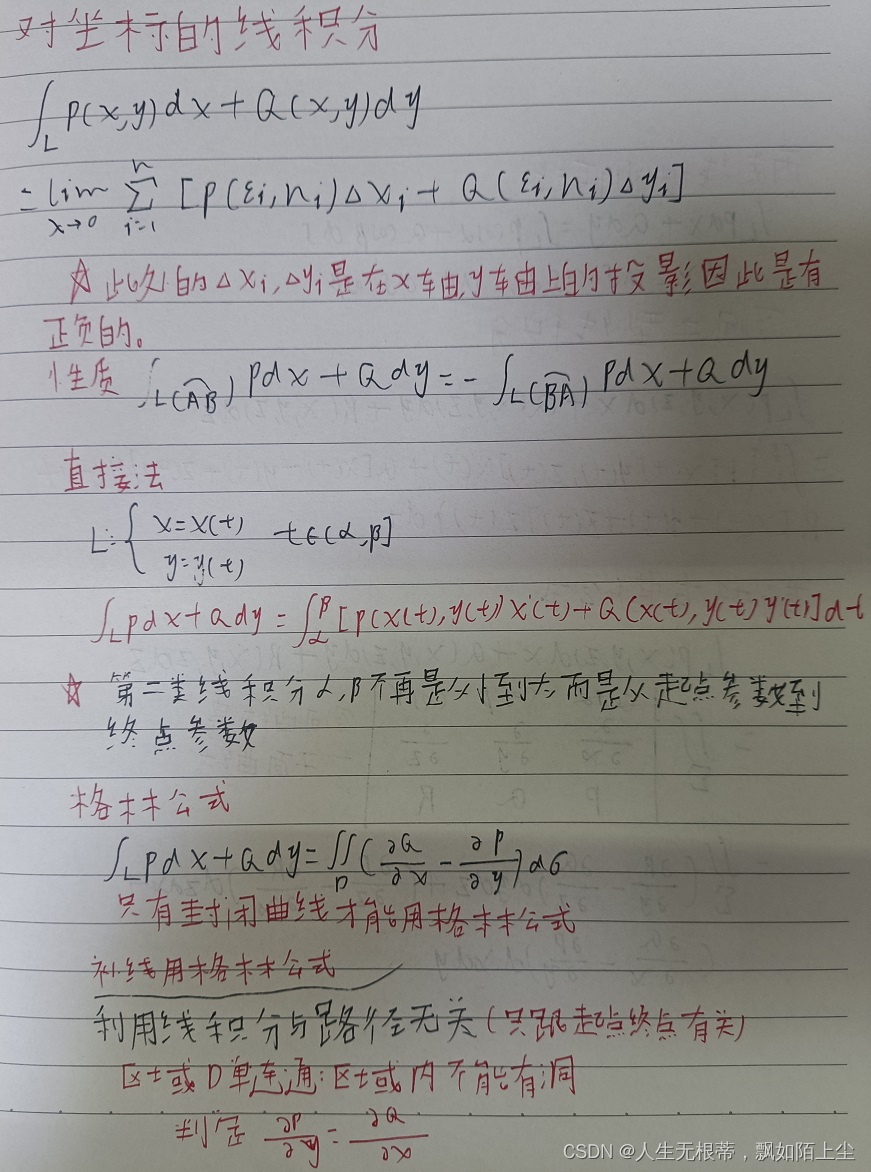 对坐标的线积分
∫_L P(x,y)dx+Q(x,y)dy
=lim_{x→0} Σ_{i=1}^{n} [P(ε_i,n_i)Δx_i+Q(ε_i,n_i)Δy_i]
☆ 此处的Δx_i,Δy_i是在x轴,y轴上的投影因此是有
正负的。
性质 ∫_{L(AB)} Pdx+Qdy=-∫_{L(BA)} Pdx+Qdy
直接法
L:{ x=x(t) t∈(α,β]
y=y(t)
∫_L Pdx+Qdy=∫_α^β[P(x(t),y(t))x'(t)+Q(x(t),y(t)y'(t)]dt
☆ 第二类线积分α,β不再是从小到大,而是从起点参数到
终点参数
格林公式
∫_L Pdx+Qdy=∬_D(∂Q/∂x-∂P/∂y)dσ
只有封闭曲线才能用格林公式
补线用格林公式
利用线积分与路径无关(只跟起点终点有关)
区域D单连通:区域内不能有洞
判定 ∂P/∂y=∂Q/∂x
CSDN @人生无根蒂，飘如陌上尘